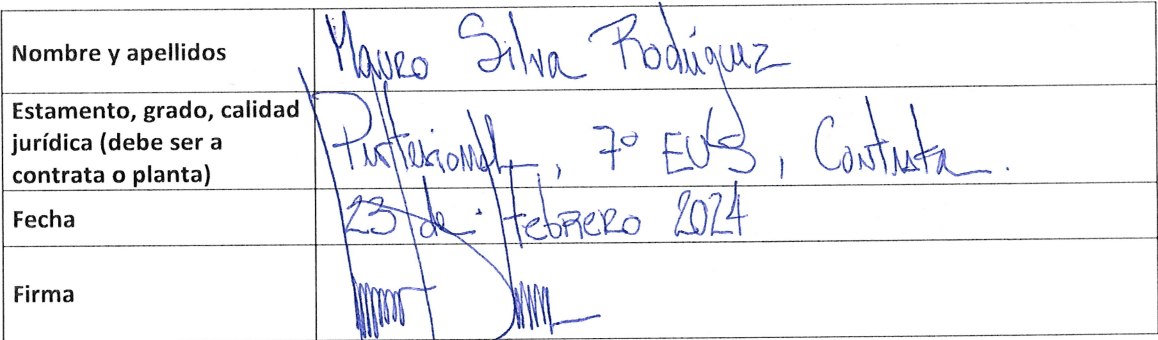 Nombre y apellidos Mauro Silva Rodríguez
Estamento, grado, calidad
jurídica (debe ser a
contrata o planta) Profesional, 7° EUS, Contrata.
Fecha 23 de Febrero 2024
Firma